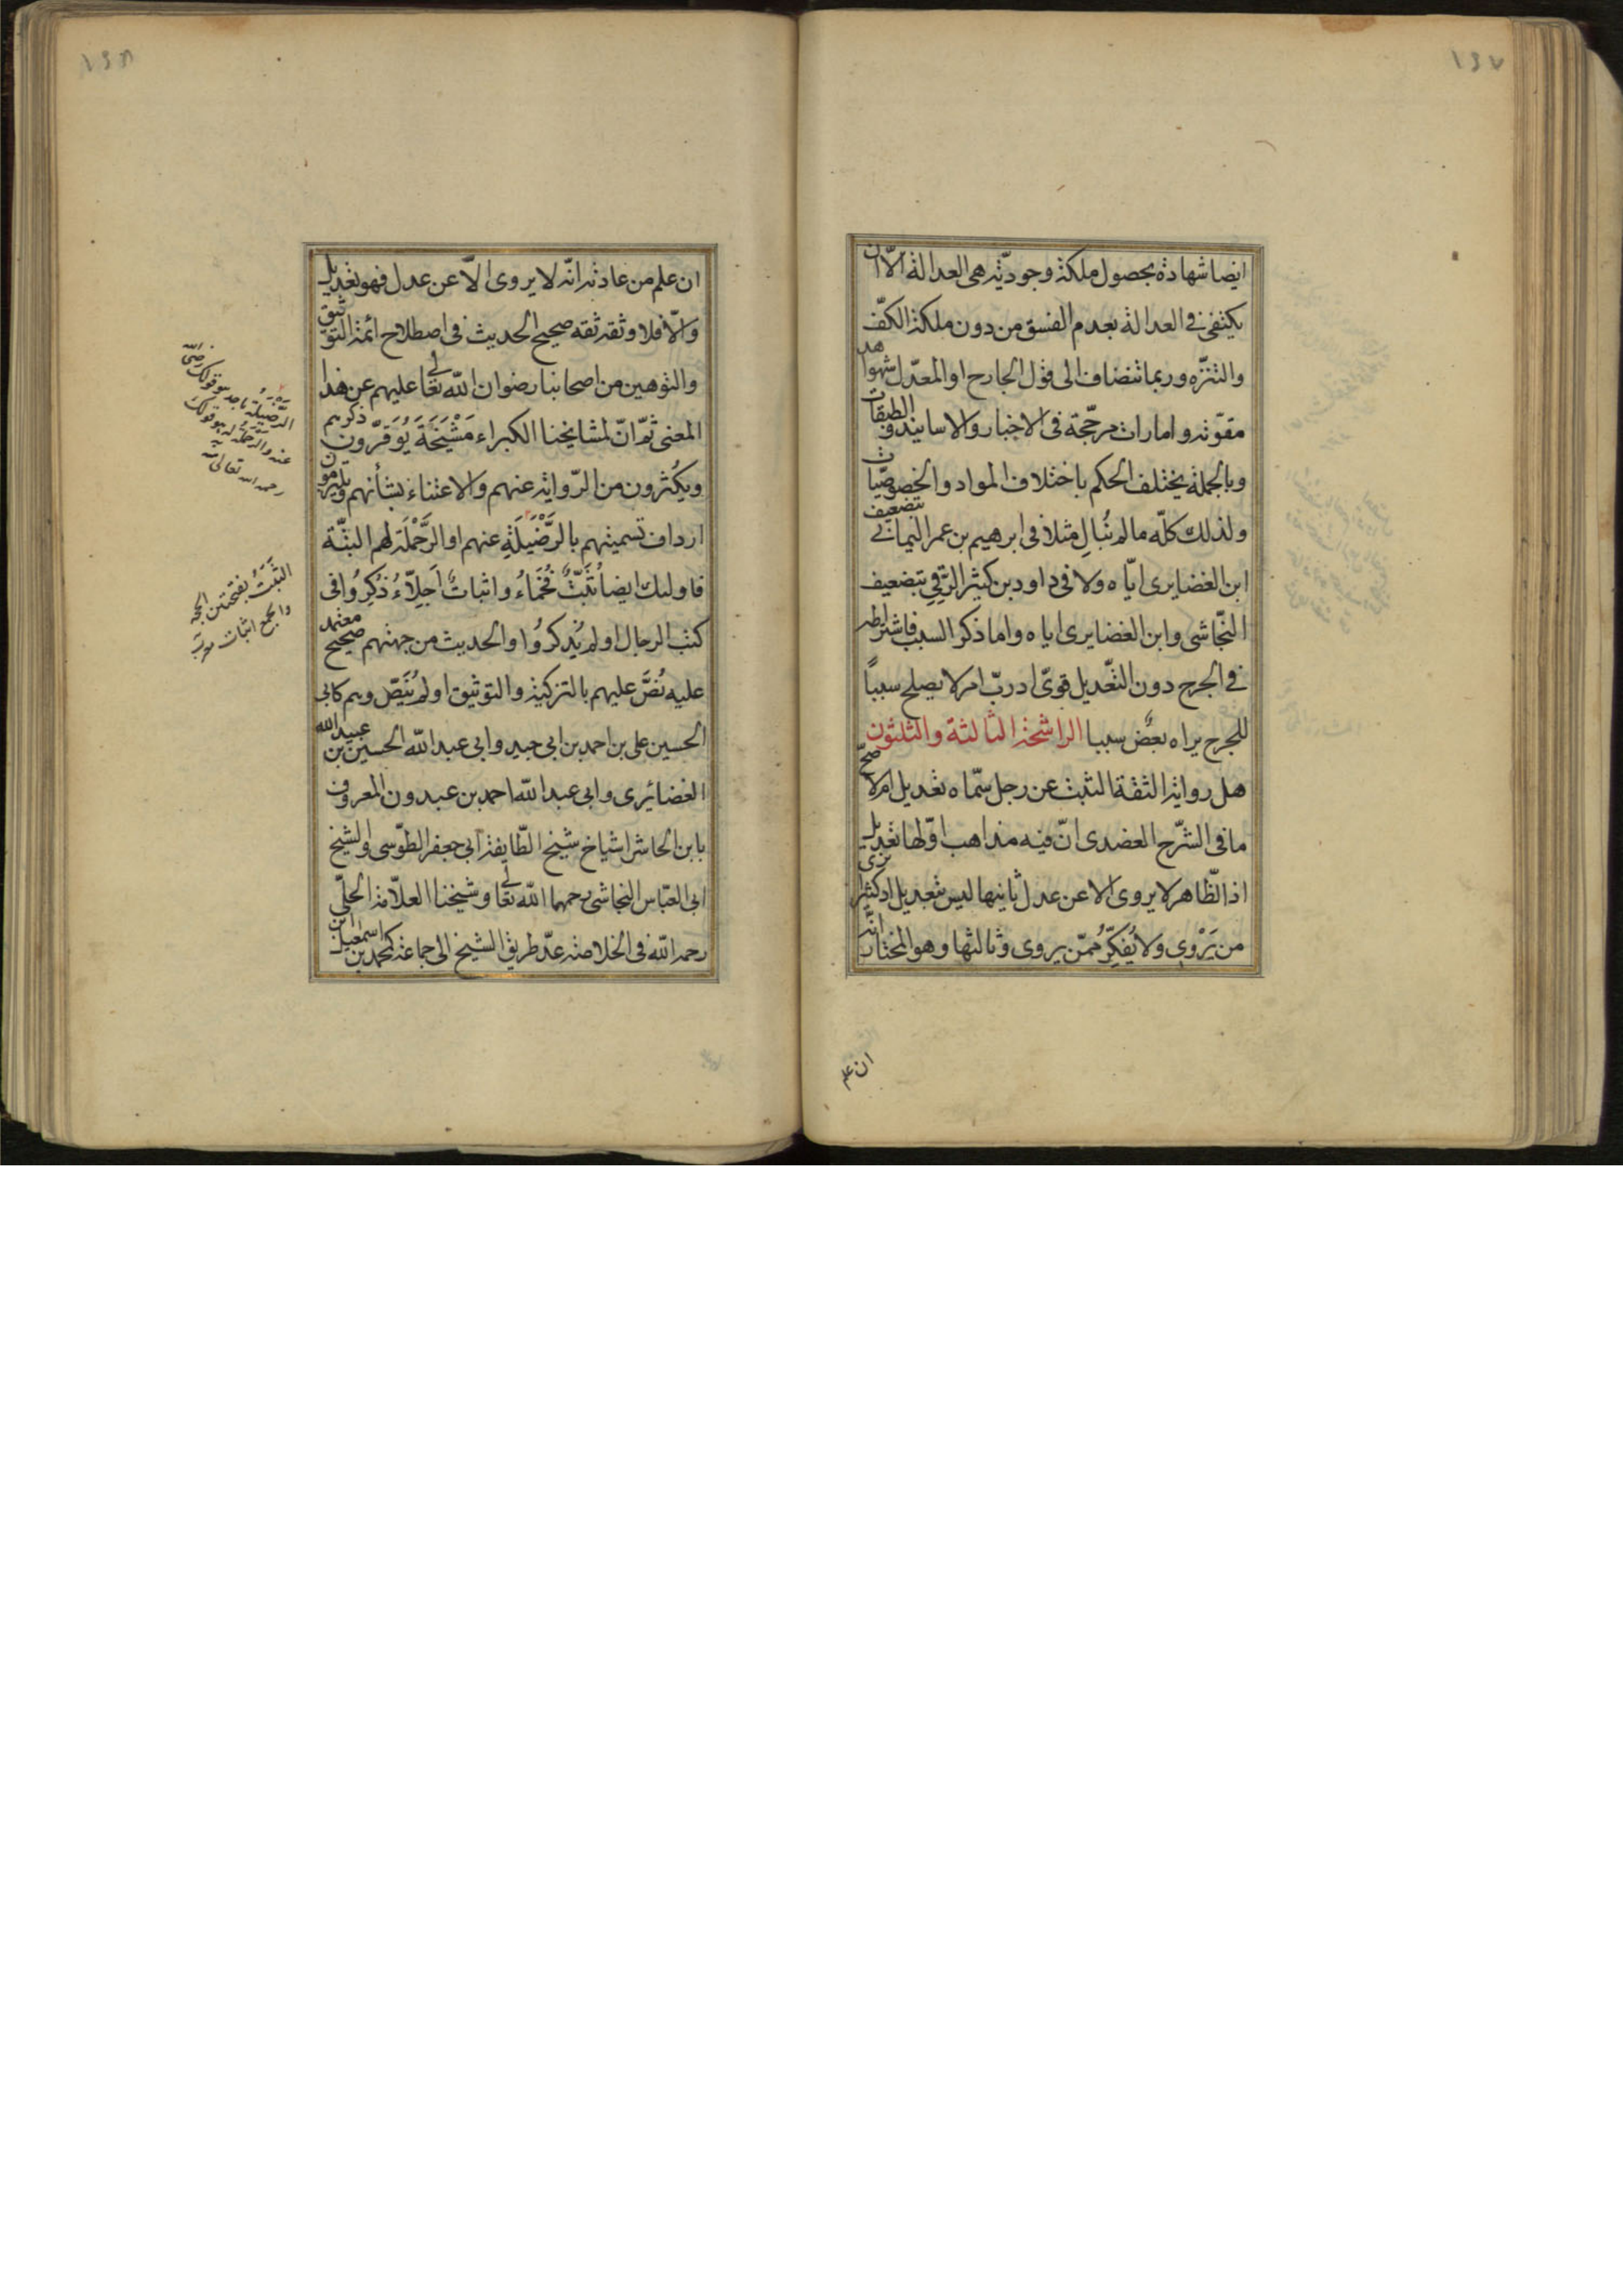 ١٤٧
ايضا شهادة بحصول ملكة وجوديّة هى العدالة الّا ان
يكتفى فى العدالة بعدم الفسق من دون ملكة الكفّ
والتنزّه وربما تنضاف الى قول الجارح او المعدّل شواهد
مقوّية وامارات مرجّحة فى الاخبار والاسانيد والطبقات
وبالجملة يختلف الحكم باختلاف المواد والخصوصيّات
ولذلك كلّه ما لم نُبالِ مثلا فى ابرهيم بن عمر اليمانى بتضعيف
ابن الغضايرى ايّاه ولا فى داود بن كثير الرّقى بتضعيف
النّجاشى وابن الغضايرى اياه واما ذكر السبب فاشتراطه
فى الجرح دون التّعديل قوىّ اذ ربّ امر لا يصلح سبباً
للجرح يراه بعضٌ سببا الراشحة الثالثة والثلثون
هل رواية الثقة الثبت عن رجل سمّاه تعديل ام لا صحّ
ما فى الشّرح العضدى انّ فيه مذاهب اوّلها تعديل
اذ الظّاهر لا يروى الا عن عدل ثانيها ليس بتعديل اذ كثيرا نرى
من يَرْوى ولا يُفكّر ممّن يروى وثالثها وهو المختار انّه
ان علم
١٤٨
ان علم من عادته انّه لا يروى الّا عن عدل فهو تعديل
والّا فلا وثقه ثقه صحيح الحديث فى اصطلاح ائمة التوثيق
والتوهين من اصحابنا رضوان اللّه تعالى عليهم عن هذا
المعنى ثمّ انّ لمشايخنا الكبراء مَشْيَخَةً يُوَقّرون ذكرهم
ويكُثرون من الرّواية عنهم والاعتناء بشأنهم ويلتزمون
ارداف تسميتهم بالرَّضْيَلَةِ عنهم او الرَّحْمَلَة لهم البتّة
فاولئك ايضا ثَبَتٌ فُخَماءُ واثباتٌ اَجِلّاءُ ذُكِرُوا فى
كتب الرجال او لم يُذكروُا والحديث من جهتهم صحيح معتمد
عليه نُصَّ عليهم بالتزكية والتوثيق او لم يُنَصّ وهم كابى
الحسين على بن احمد بن ابى جيد وابى عبد اللّه الحسين بن عبيد الله
الغضائرى وابى عبد اللّه احمد بن عبدون المعروف
بابن الحاشر اشياخ شيخ الطّايفة ابى جعفر الطّوسى والشيخ
ابى العبّاس النجاشى رحمهما اللّه تعالى وشيخنا العلّامة الحلّى
رحمه اللّه فى الخلاصة عدّ طريق الشيخ الى جماعة كمحمد بن اسمعيل ابن
الرَّضْيَلَة
هو قولك رضى اللّه
عنه والرحملة هو قولك
رحمه الله تعالى
الثَبَتُ بفتحتين الحجة
والجمع اثبات